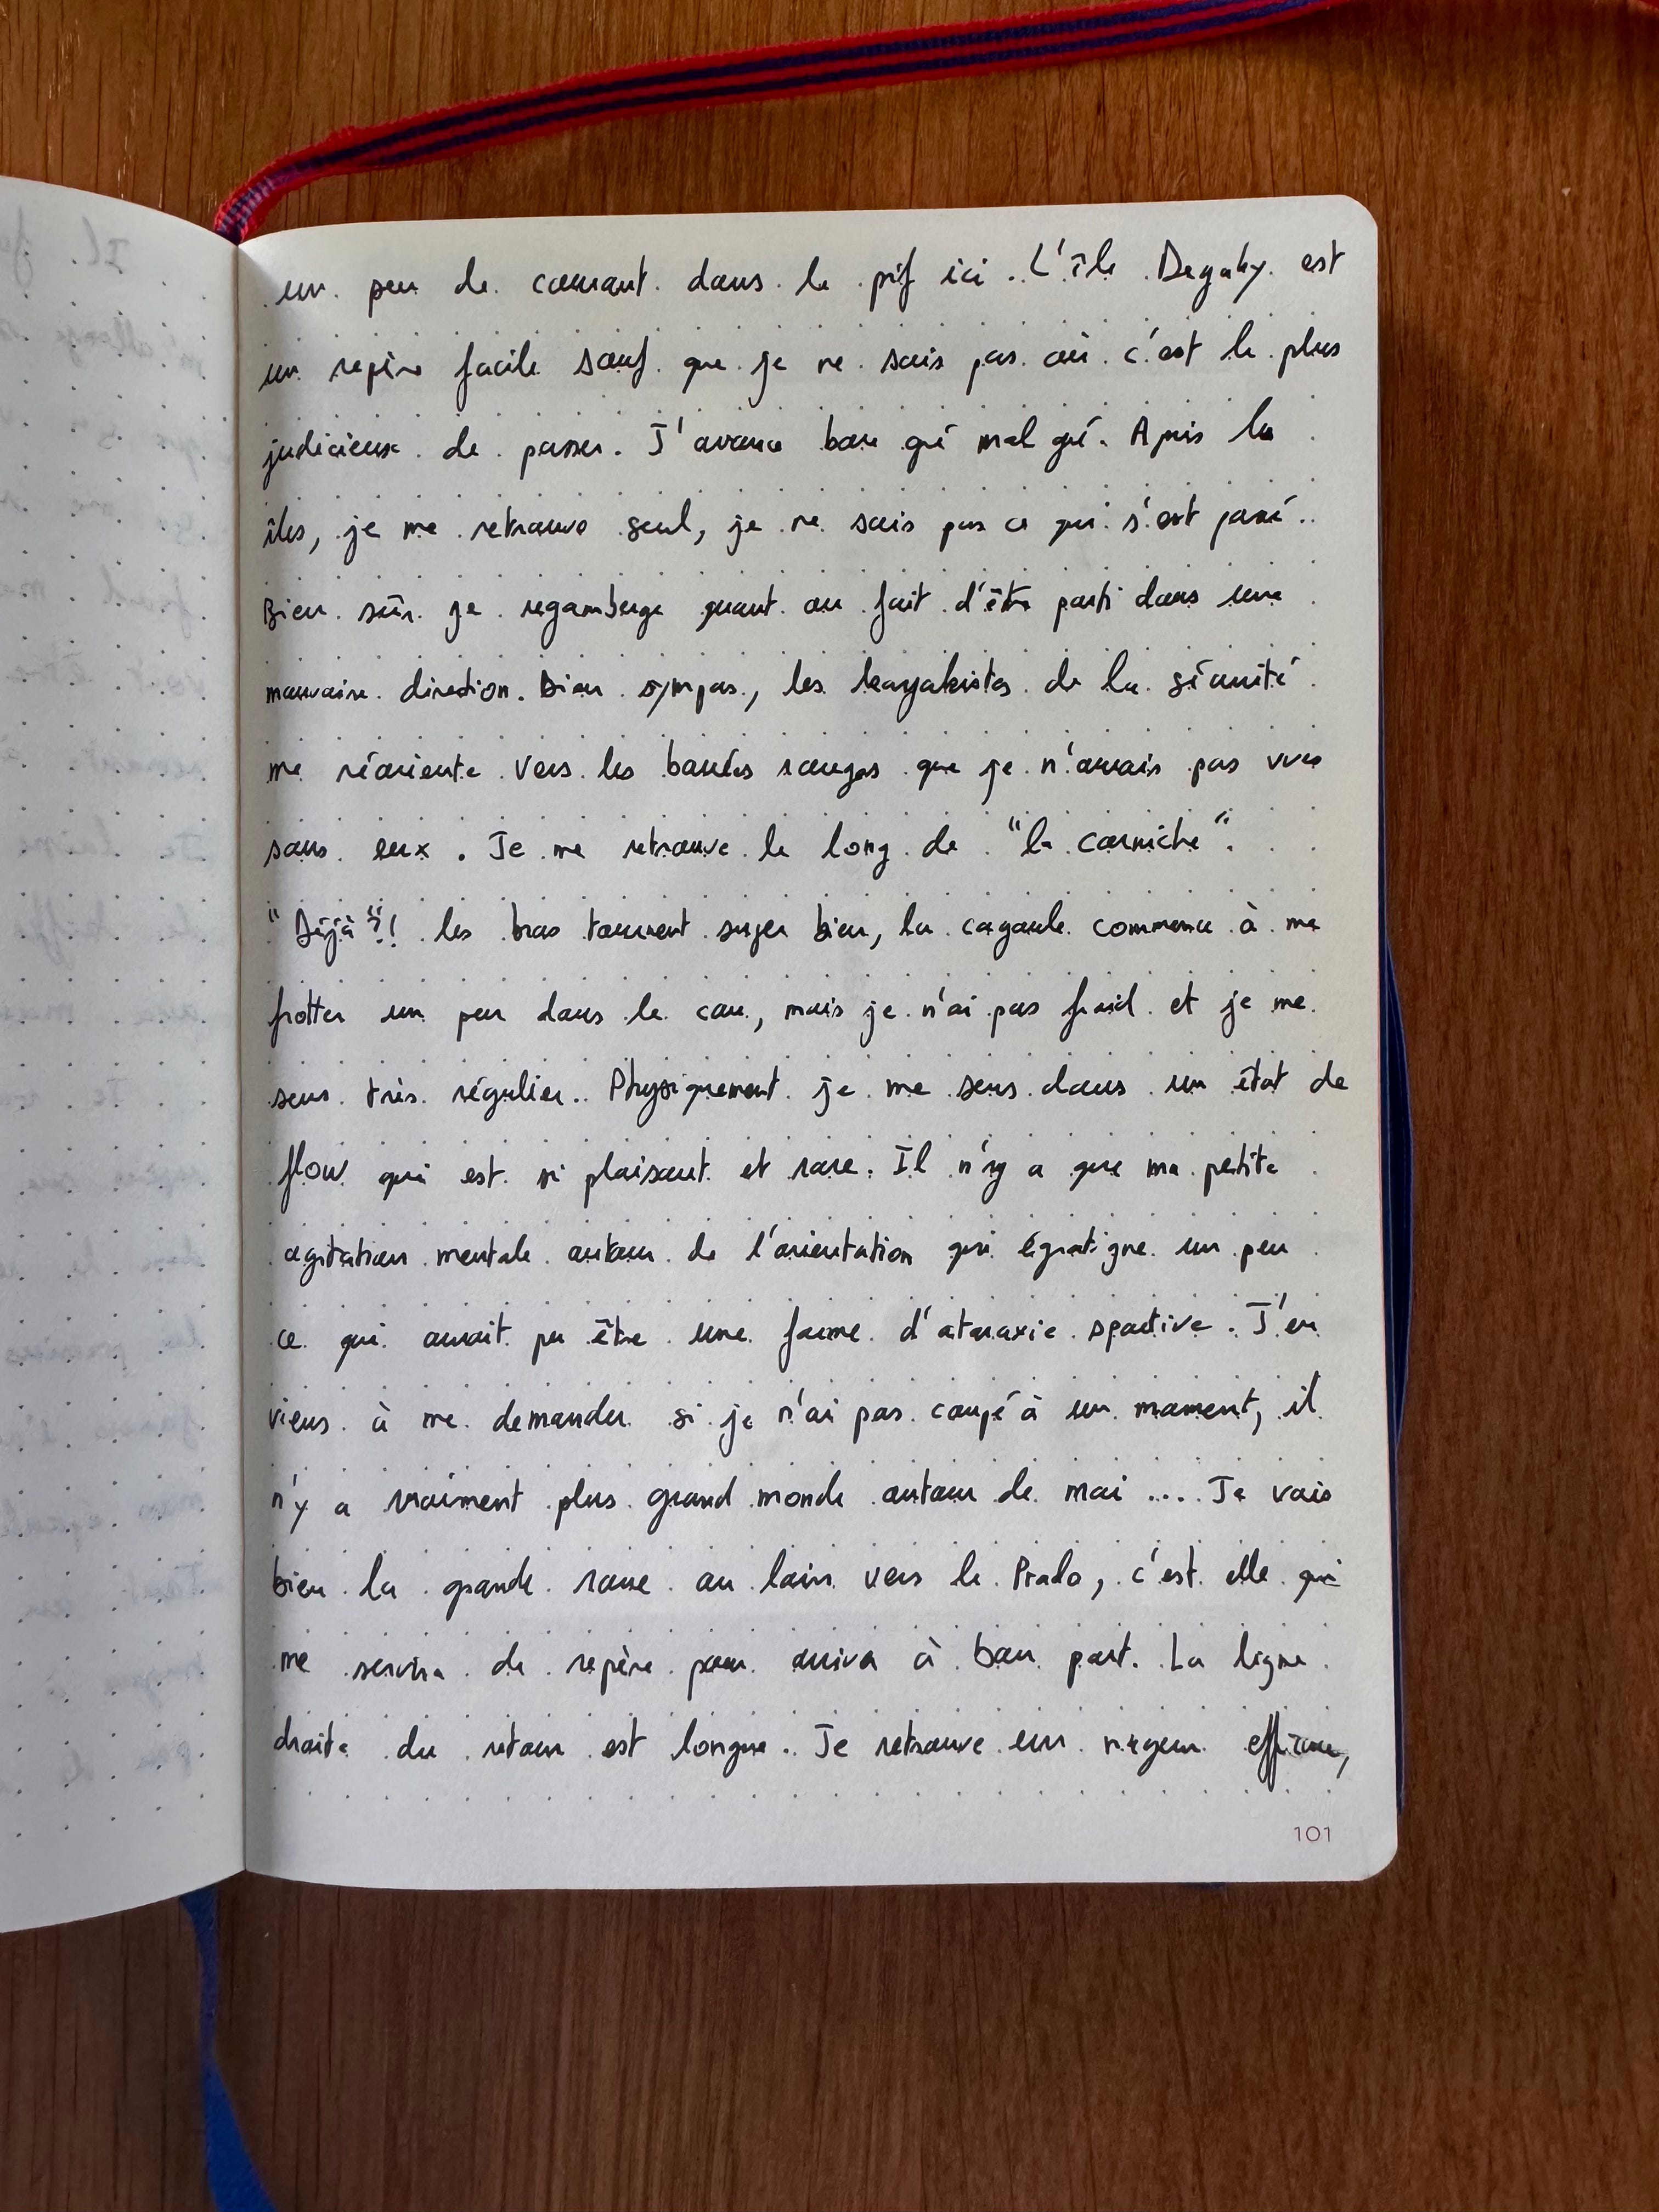 un peu de courant dans le pif ici. L'île Degaby est
un repère facile sauf que je ne sais pas où c'est le plus
judicieux de passer. J'avance bon gré mal gré. Après les
îles, je me retrouve seul, je ne sais pas ce qui s'est passé.
Bien sûr je regamberge quant au fait d'être parti dans une
mauvaise direction. Bien sympas, les kayakistes de la sécurité
me réoriente vers les bouées rouges que je n'aurais pas vues
sans eux. Je me retrouve le long de "la corniche".
"Déjà"?! les bras tournent super bien, la cagoule commence à me
frotter un peu dans le cou, mais je n'ai pas froid et je me
sens très régulier. Physiquement je me sens dans un état de
flow qui est si plaisant et rare. Il n'y a que ma petite
agitation mentale autour de l'orientation qui égratigne un peu
ce qui aurait pu être une forme d'ataraxie sportive. J'en
viens à me demander si je n'ai pas coupé à un moment, il
n'y a vraiment plus grand monde autour de moi .... Je vois
bien la grande roue au loin vers le Prado, c'est elle qui
me servira de repère pour arriver à bon port. La ligne
droite du retour est longue. Je retrouve un nageur
101